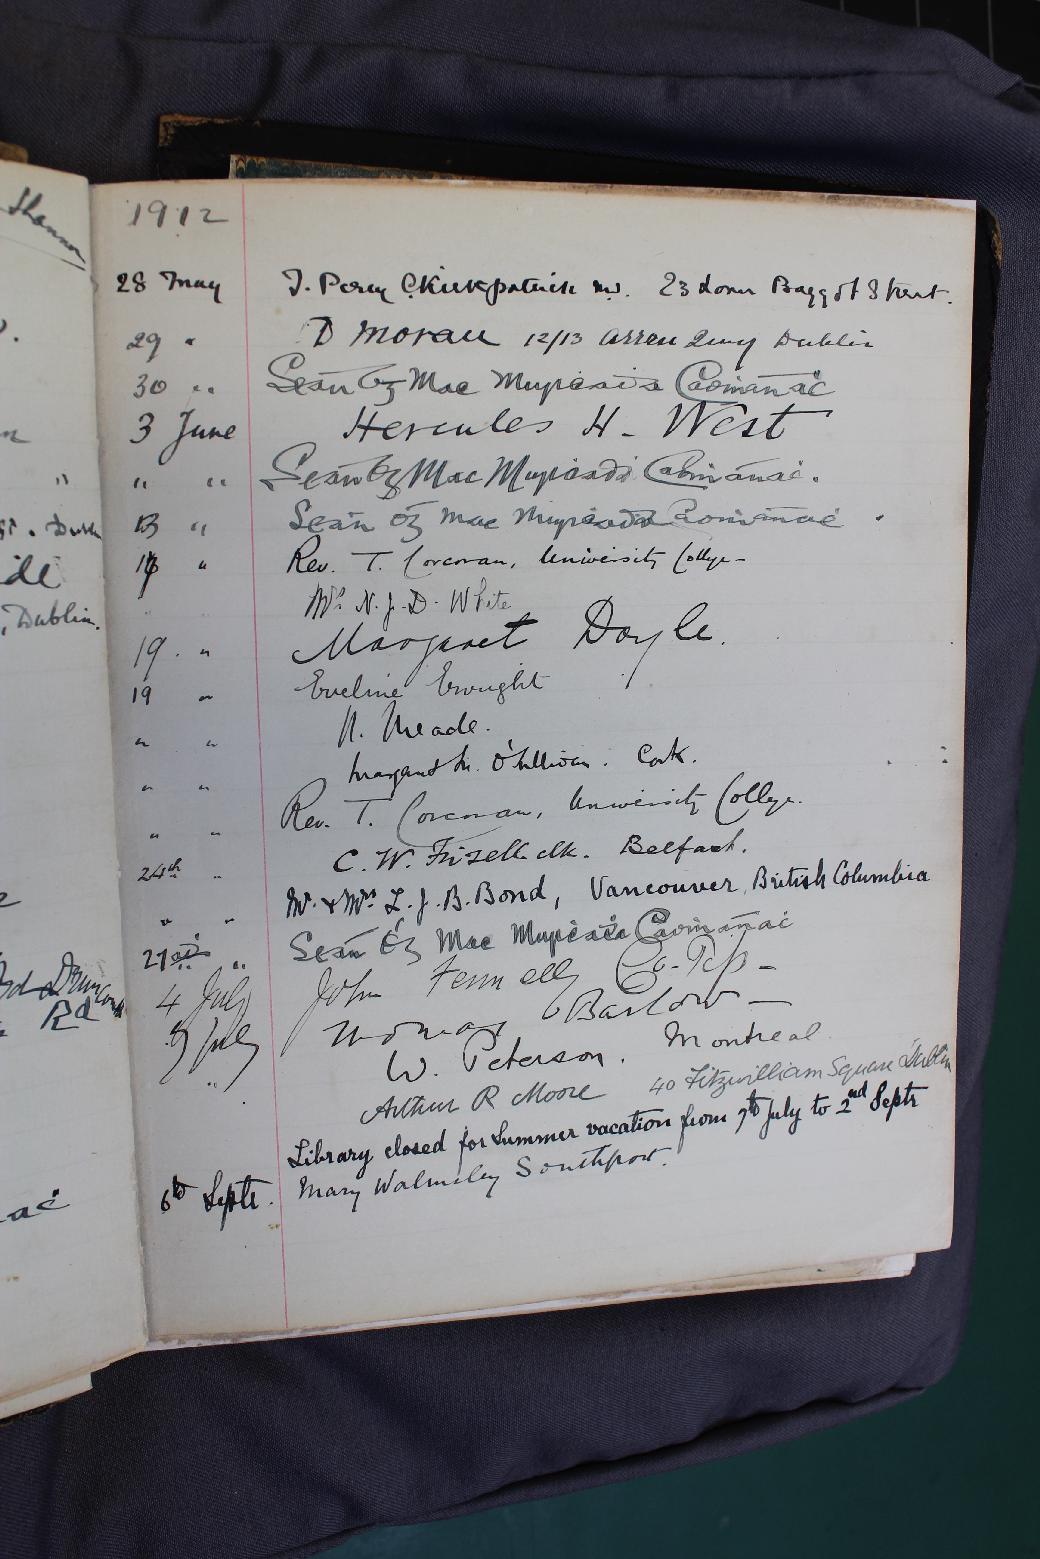 Shannon
1912
28 May T. Percy C. Kirkpatrick MD. 23 Lower Baggot Street.
29 " D Moran 12/13 Arran Quay Dublin
30 " Seán Óg Mac Murċaḋa Caománaċ
3 June Hercules H. West
" " Seán Óg Mac Murċaḋa Caománaċ.
13 " Seán Óg Mac Murċaḋa Caománaċ.
" Rev. T. Corcoran, University College
Mrs N. J. D. White
19 " Margaret Doyle.
19 " Eveline
" " Meade.
" " Margaret M. O'Sullivan. Cork.
" " Rev. T. Corcoran, University College.
24th " C. W. Belfast.
" " Mr. & Mrs L. J. B. Bond, Vancouver, British Columbia
" Seán Óg Mac Murċaḋa Caománaċ
4 July John Fennelly Co. Tip
5 July Thomas Barlow
" W. Peterson. Montreal
Arthur R Moore 40 Fitzwilliam Square Dublin
Library closed for Summer vacation from 7th July to 2nd Septr
6th Septr. Mary Walmsley Southport.
Dublin
, Dublin.
Rd